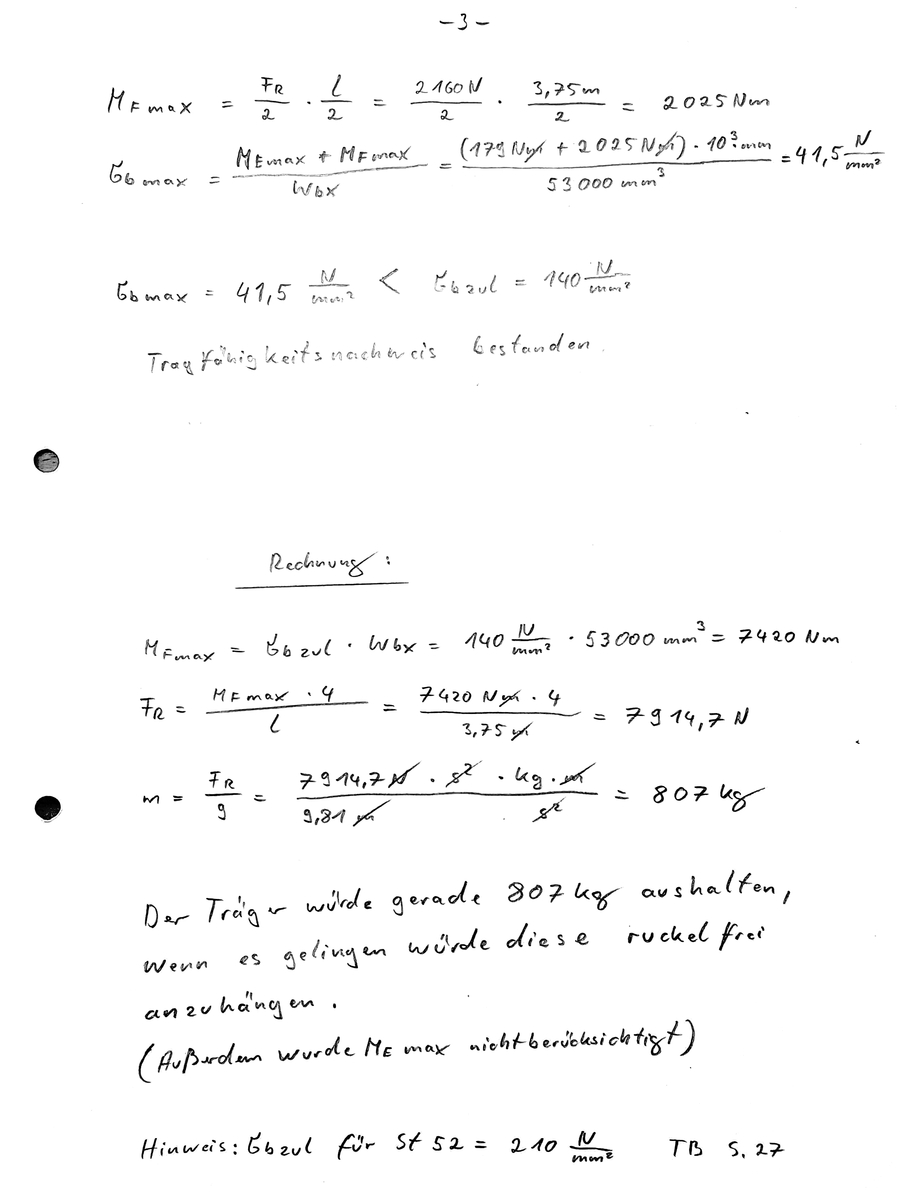 -3-
M_Fmax = F_R/2 · l/2 = 2160N/2 · 3,75m/2 = 2025 Nm
σ_bmax = (M_Emax + M_Fmax)/W_bx = ((179 Nm + 2025 Nm) · 10³ mm)/(53000 mm³) = 41,5 N/mm²
σ_bmax = 41,5 N/mm² < σ_bzul = 140 N/mm²
Tragfähigkeitsnachweis bestanden.
Rechnung:
M_Fmax = σ_bzul · W_bx = 140 N/mm² · 53000 mm³ = 7420 Nm
F_R = (M_Fmax · 4)/l = (7420 Nm · 4)/(3,75 m) = 7914,7 N
m = F_R/g = (7914,7 N · s² · kg · m)/(9,81 m s²) = 807 kg
Der Träger würde gerade 807 kg aushalten,
wenn es gelingen würde diese ruckelfrei
anzuhängen.
(Außerdem wurde M_E max nicht berücksichtigt)
Hinweis: σ_bzul für St 52 = 210 N/mm² TB S. 27